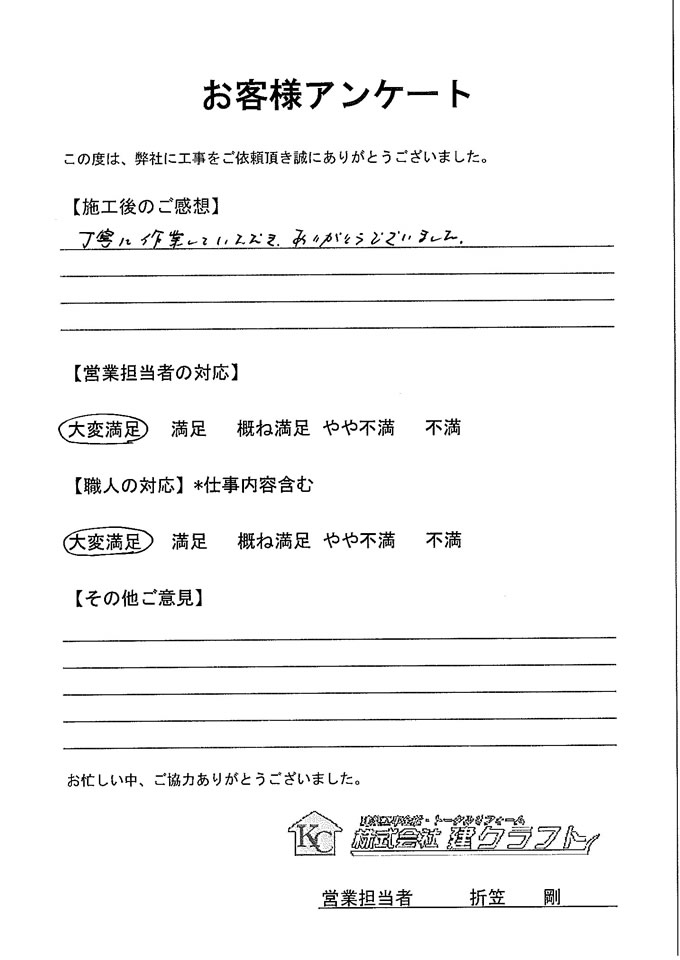 お客様アンケート
この度は、弊社に工事をご依頼頂き誠にありがとうございました。
【施工後のご感想】
丁寧に作業していただき、ありがとうございました。
【営業担当者の対応】
大変満足 満足 概ね満足 やや不満 不満
【職人の対応】*仕事内容含む
大変満足 満足 概ね満足 やや不満 不満
【その他ご意見】
お忙しい中、ご協力ありがとうございました。
KC
・トータルリフォーム
株式会社 建クラフト
営業担当者 折笠 剛